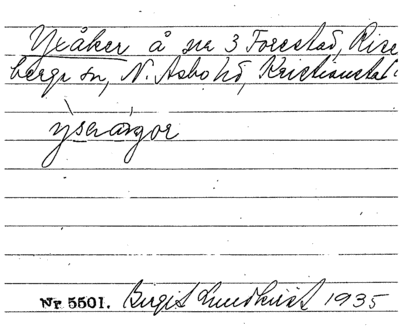 Yxåker å nr 3 Forestad, Rise
berga sn, N. Åsbo hd, Kristianstad
Nr 5501. Birgit Lundkvist 1935